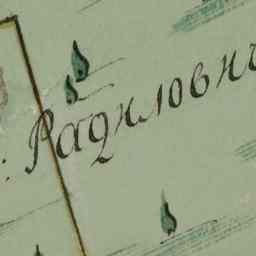 : Радилович